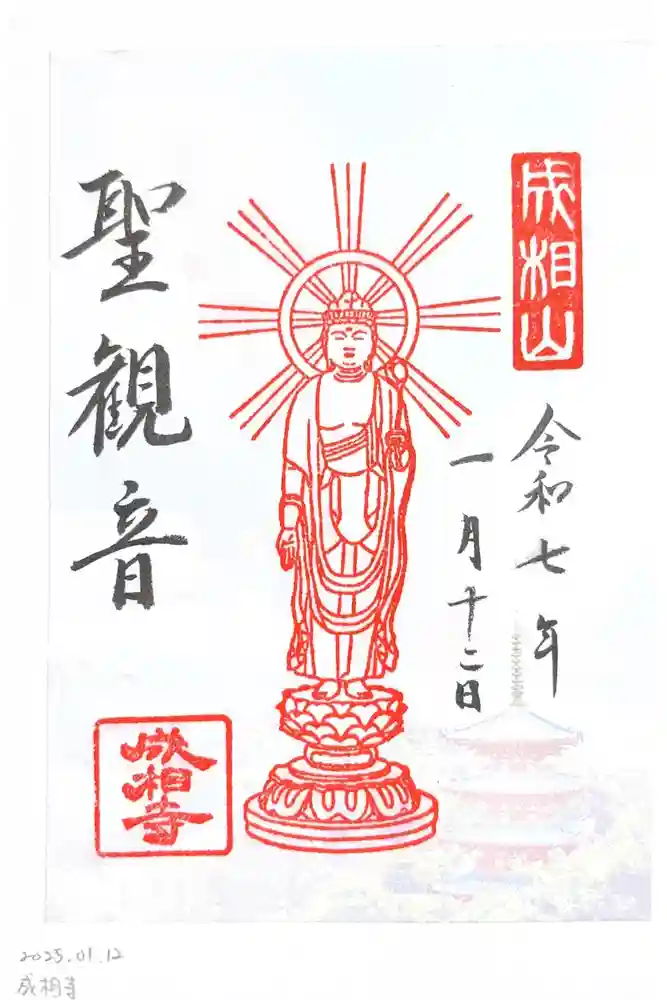 成相山
令和七年
一月十二日
聖観音
成相寺
2025.01.12
成相寺